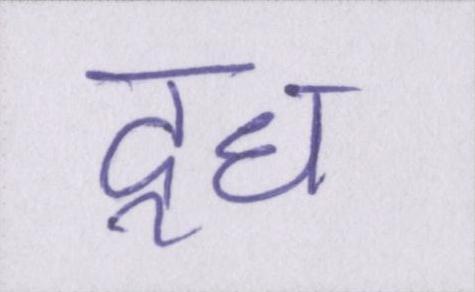 दूध